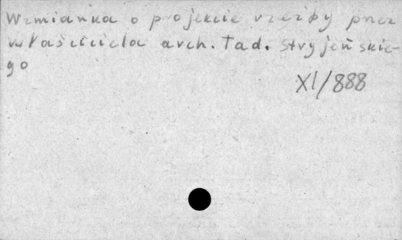 Wzmianka o projekcie rzeźby przez
właściciela arch. Tad. Stryjeńskie-
go
XI/888